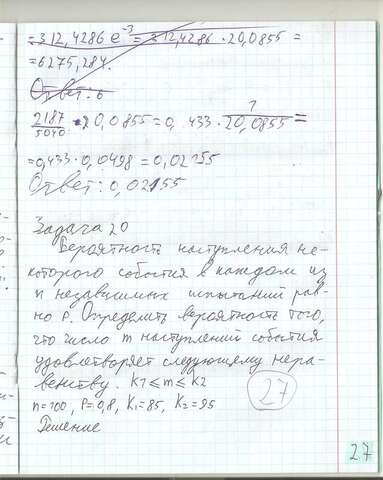 = 312,4286 e⁻³ = 312,4286 · 20,0855 =
= 6275,284.
Ответ: 6
2187/5040 · 20,0855 = 0,433 · 1/20,0855 =
= 0,433 · 0,0498 = 0,02155
Ответ: 0,02155
Задача 20
Вероятность наступления не-
которого события в каждом из
n независимых испытаний рав-
но P. Определить вероятность того,
что число m наступлений события
удовлетворяет следующему нера-
венству. K1 ≤ m ≤ K2
n=100, P=0,8, K₁=85, K₂=95
27
Решение
27